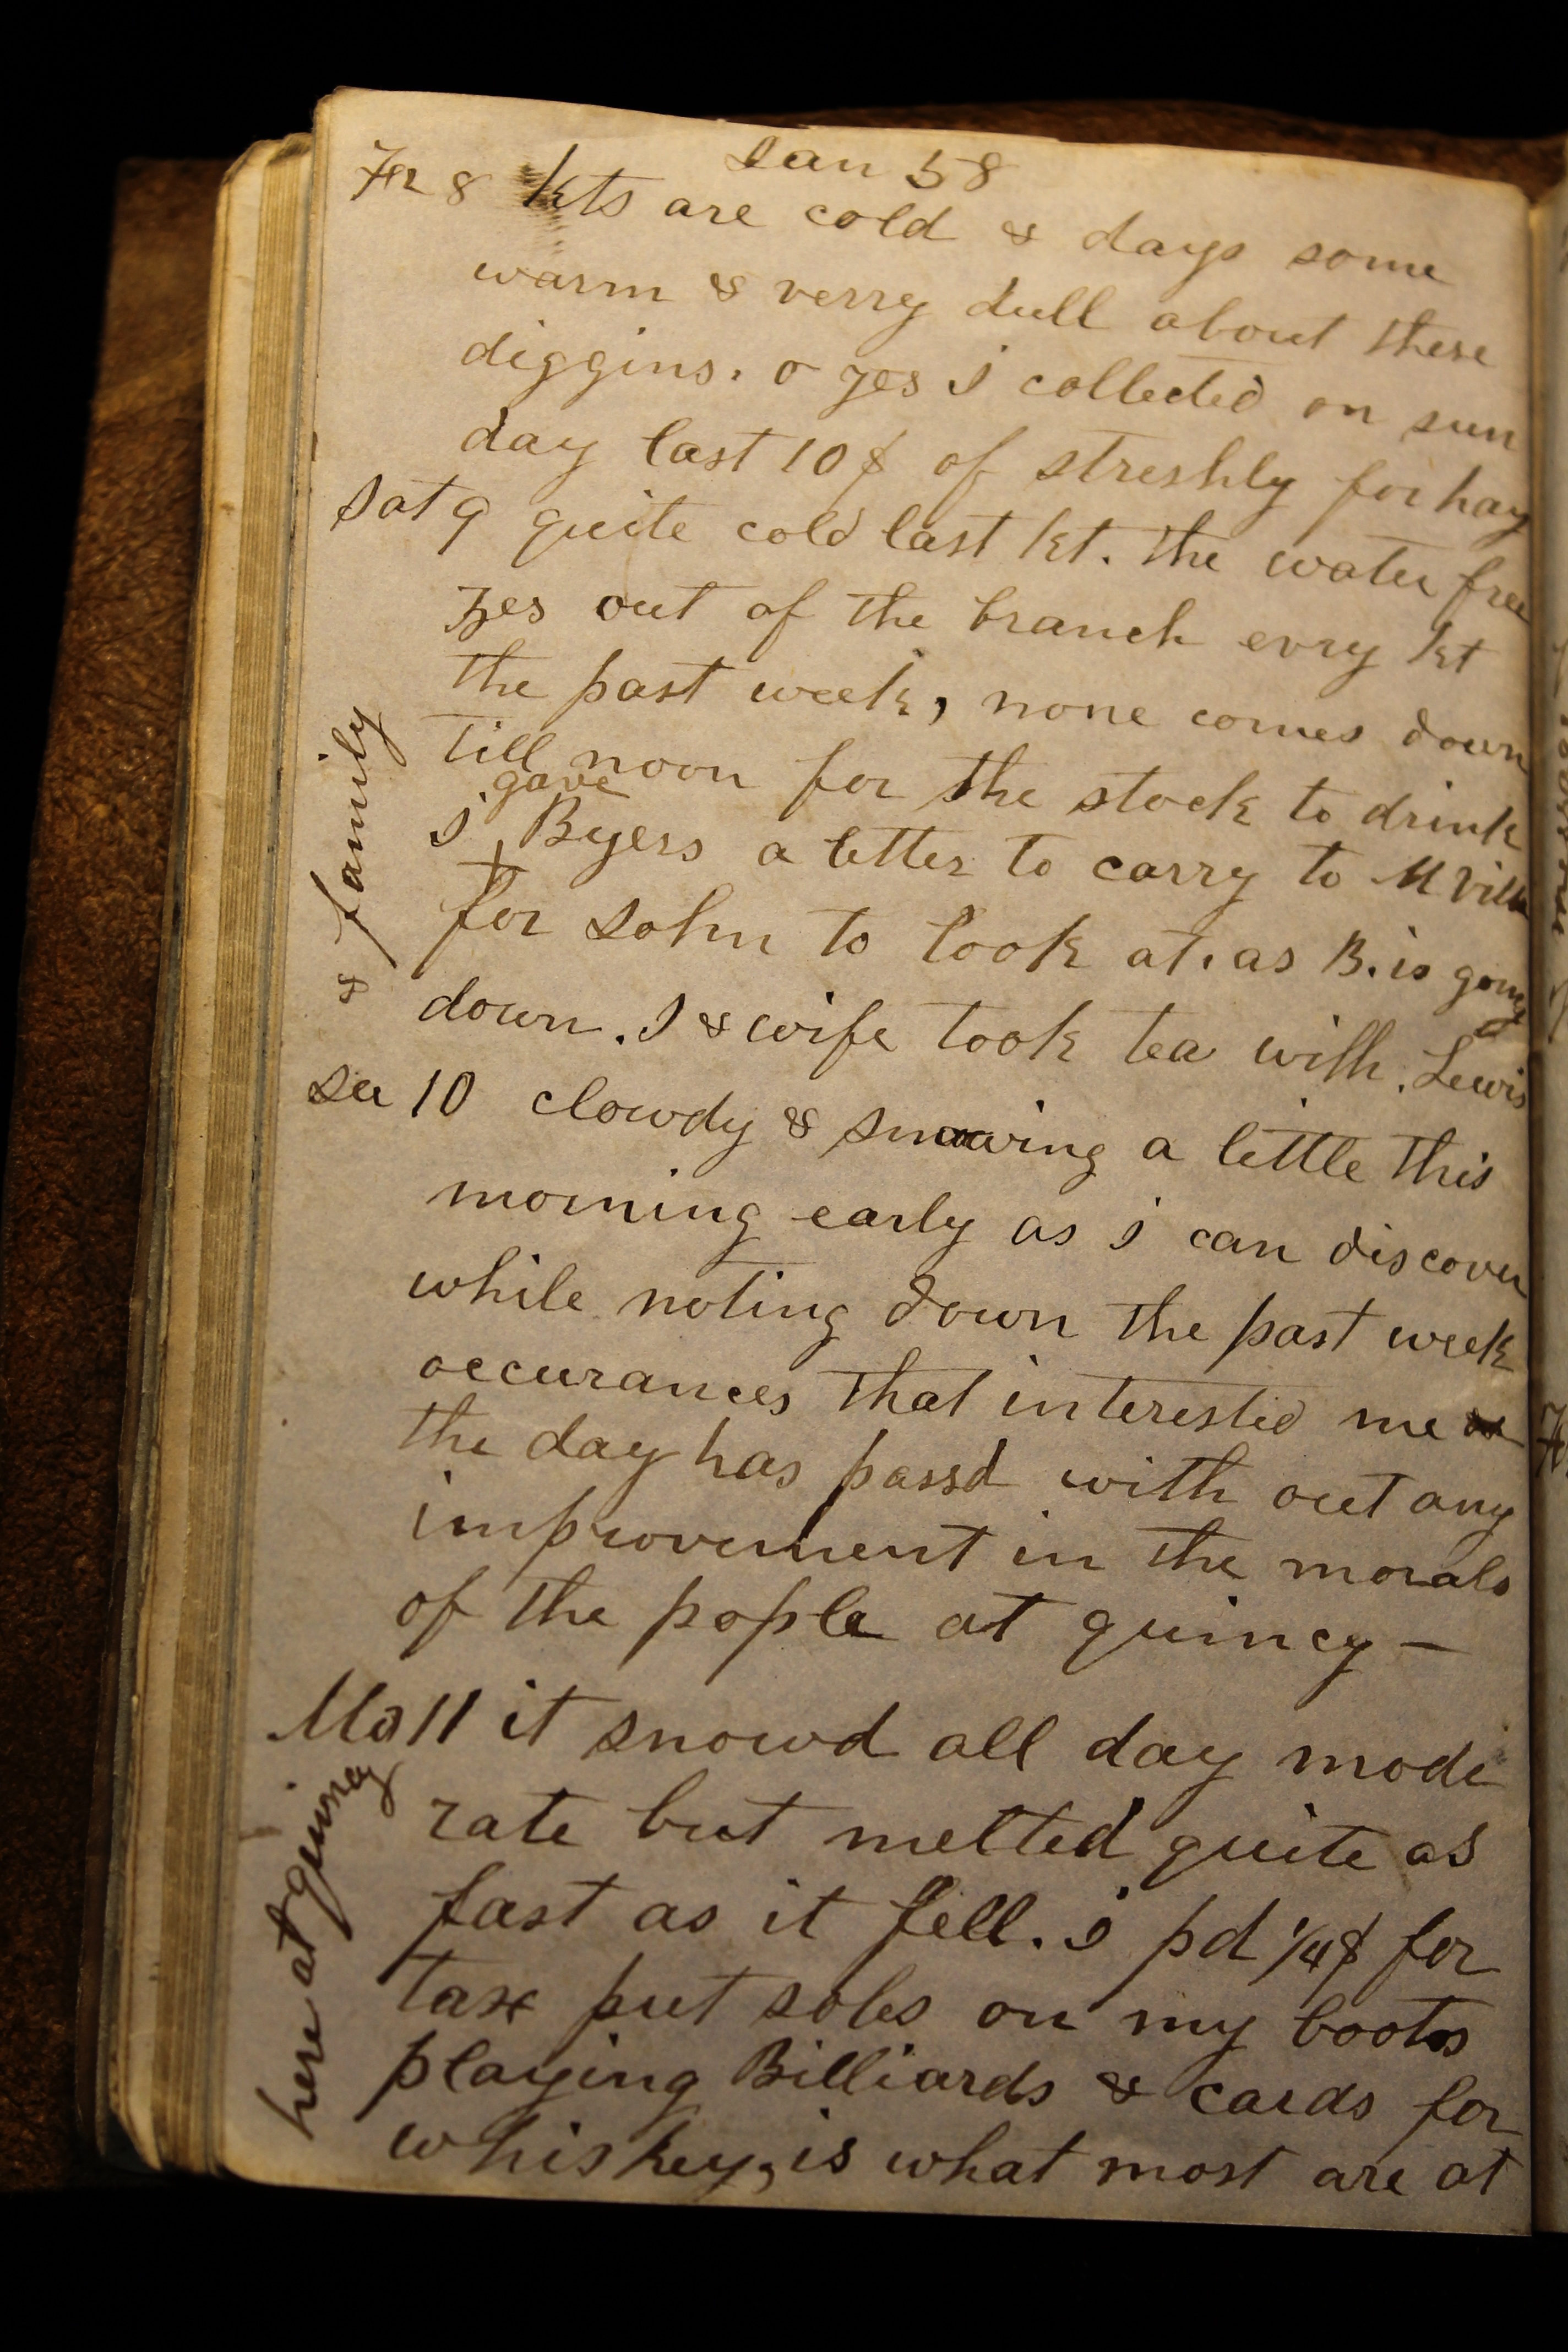 Jan 58
Fr 8 kts are cold & days some
warm & verry dull about these
diggins. o yes i collected on sun
day last 10$ of streshly for hay
Sat 9 quite cold last kt. the water free
zes out of the branch evry kt
the past week, none comes down
till noon for the stock to drink
gave
i Byers a letter to carry to M Ville
for John to look at. as B. is going
down. I & wife took tea with Lewis
& family
Su 10 clowdy & snowing a little this
morning early as i can discover
while noting down the past week
occurances that interested me
the day has passd with out any
improvement in the morals
of the pople at quincy —
Mo 11 it snowd all day mode
rate but melted quite as
fast as it fell. i pd 1/4$ for
tax put soles on my boots
playing Billiards & cards for
whiskey, is what most are at
here at quincy